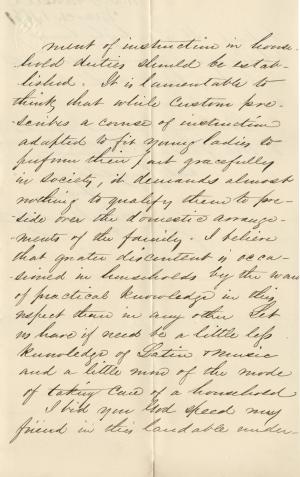 ment of instruction in house-
-hold duties should be estab-
lished. It is lamentable to
think that while Custom pre-
scribes a course of instruction
adapted to fit young ladies to
perform their part gracefully
in society, it demands almost
nothing to qualify them to pre-
side over the domestic arrange-
-ments of the family. I believe
that greater discontent is occa-
sioned in households by the want
of practical knowledge in this
respect than in any other Let
us have if need be a little less
knowledge of Latin & music
and a little more of the mode
of taking care of a household
I bid you God speed my
friend in this laudable under-